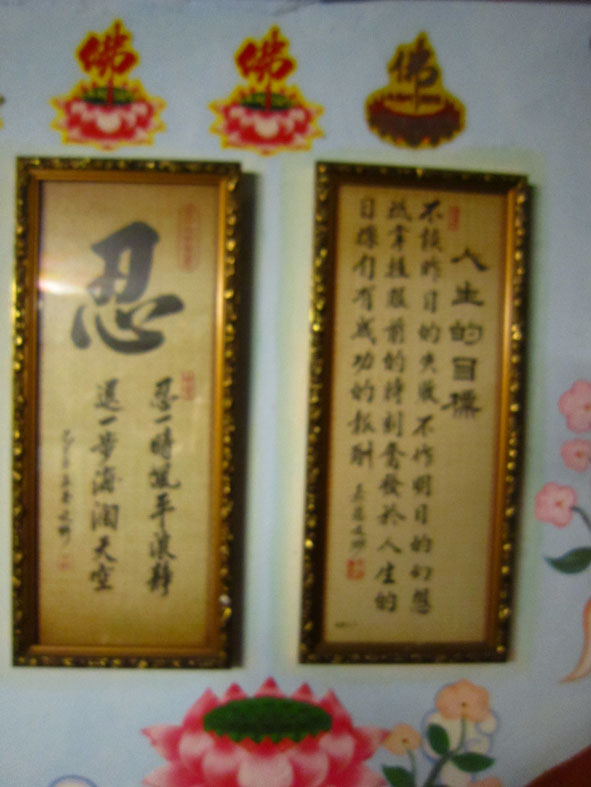 佛
佛
佛
忍
忍一時風平浪靜
退一步海濶天空
人生的目標
不談昨日的失敗不作明日的幻想
祇掌握眼前的時刻奮發於人生的
目標自有成功的報酬